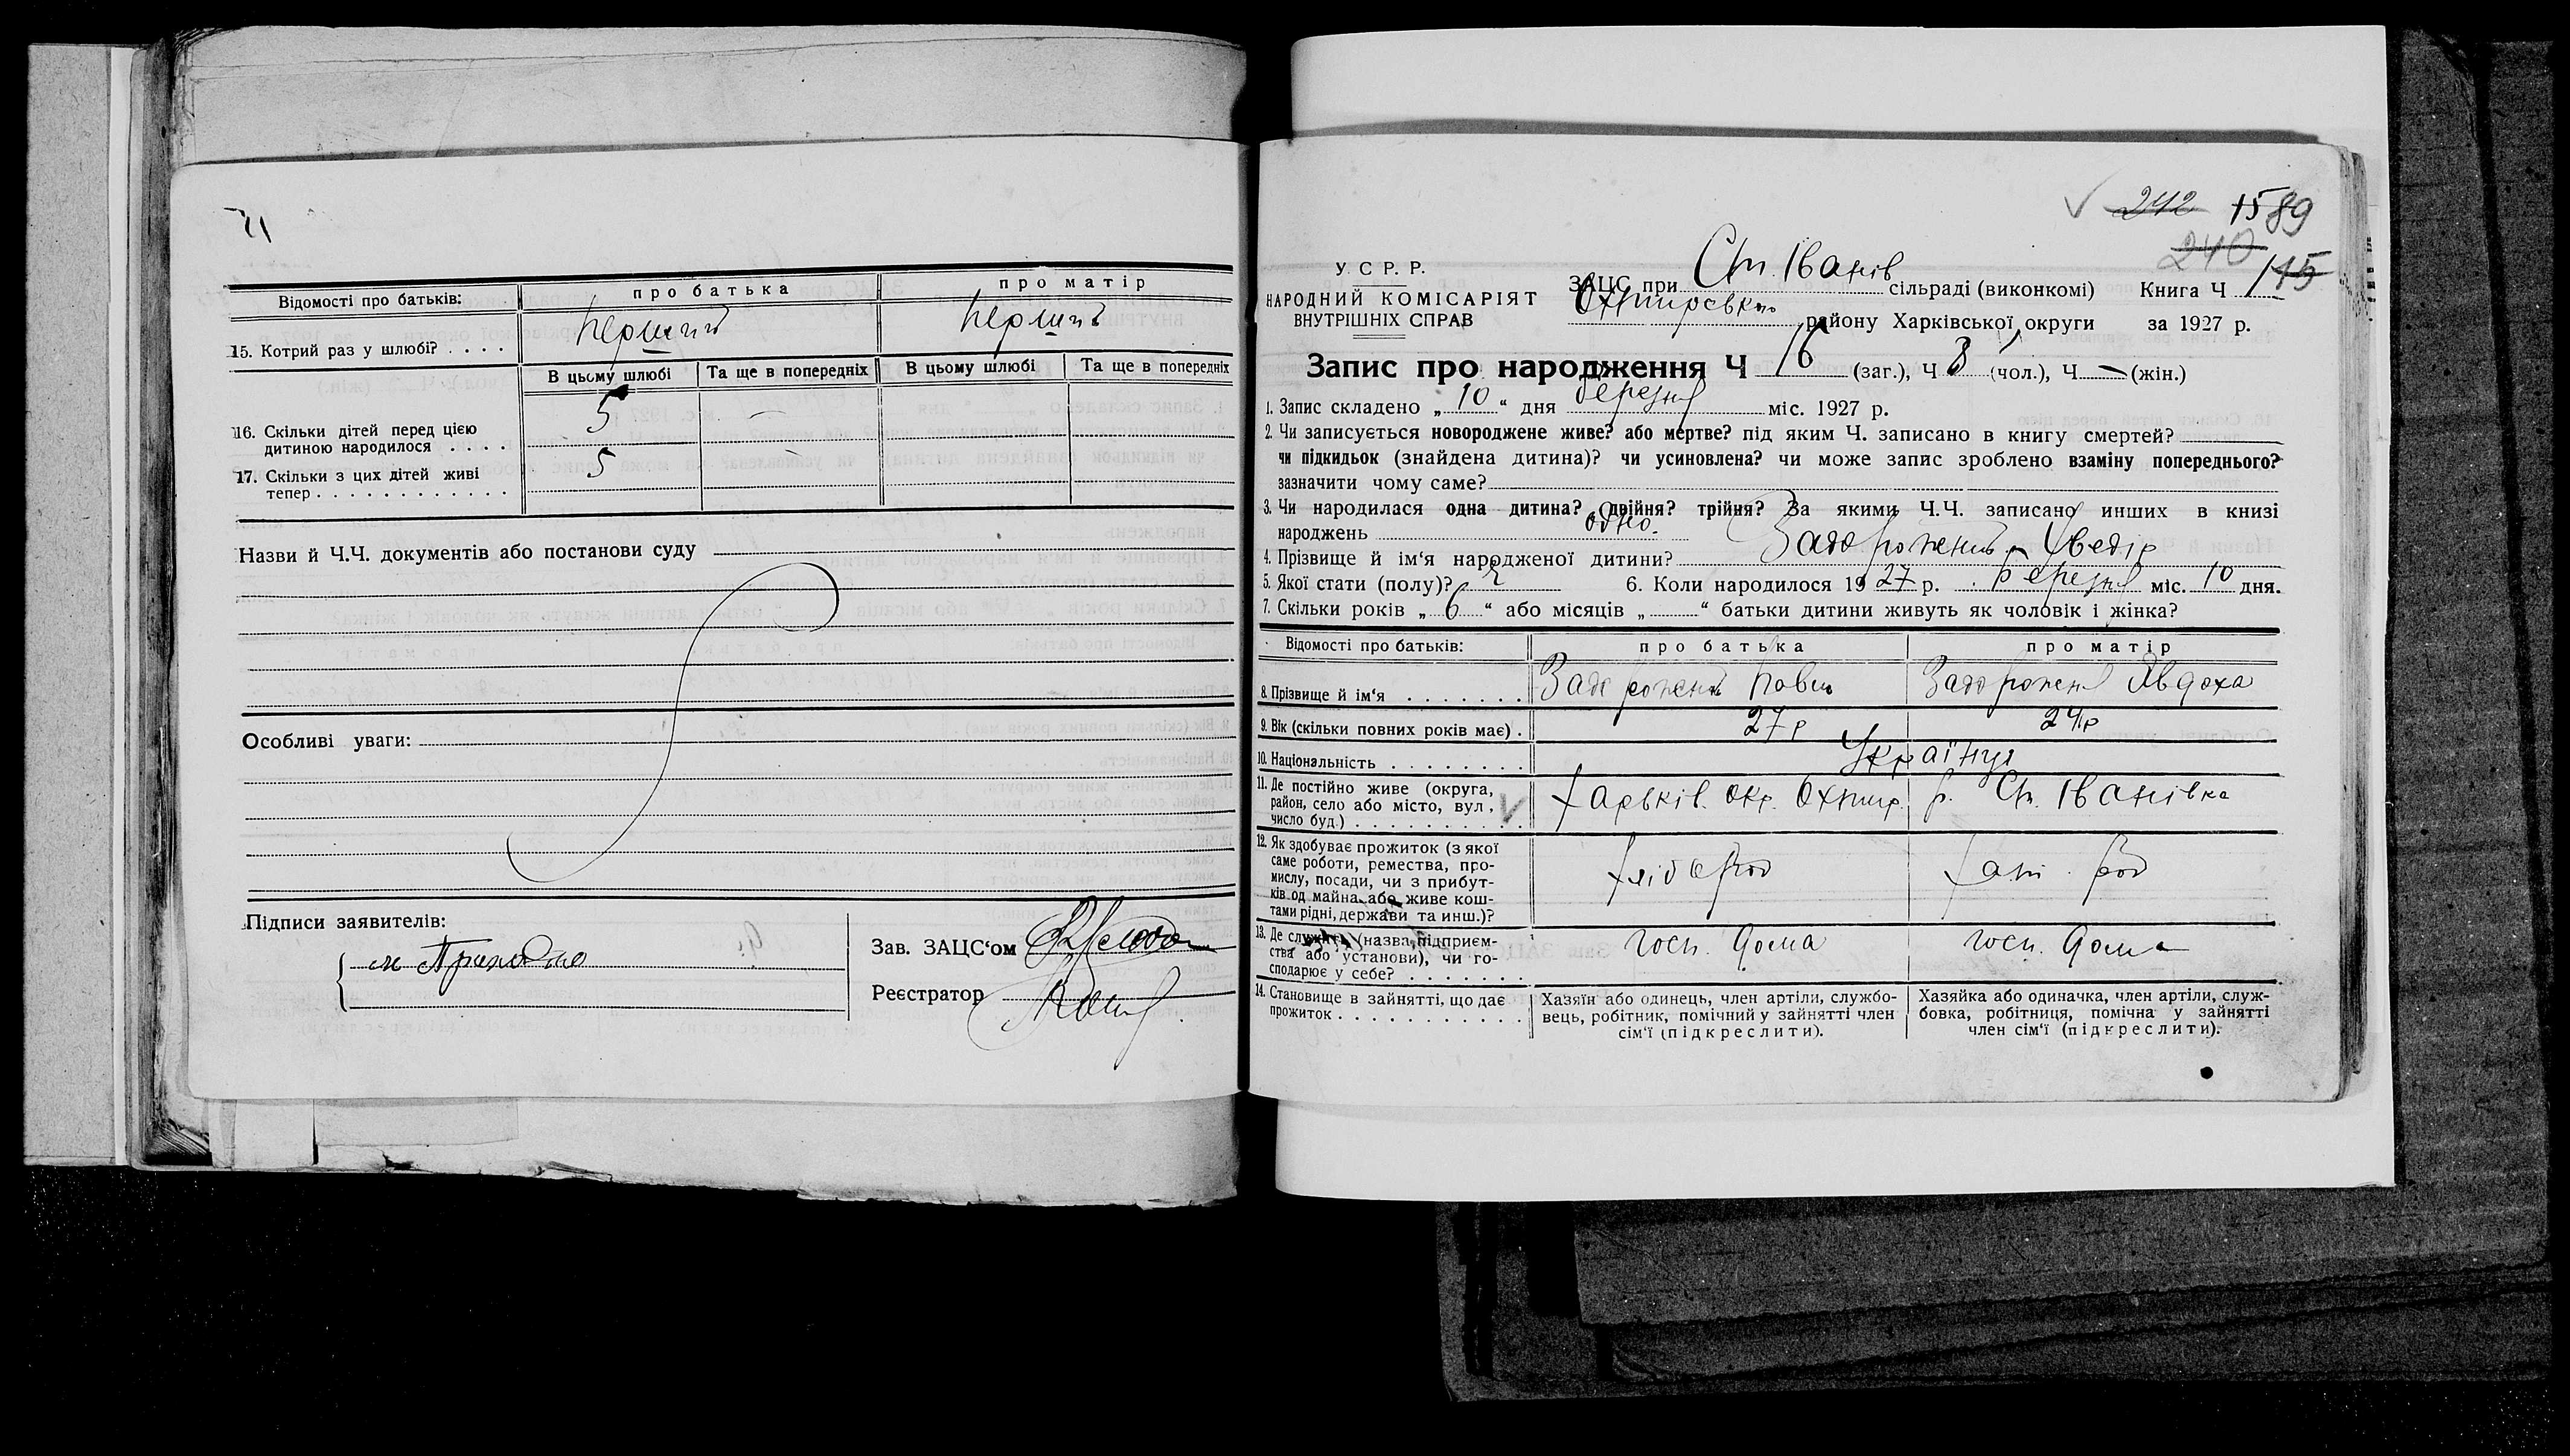 71
Відомості про батьків: про батька про матір
15. Котрий раз у шлюбі? . . . . Перший Перший
В цьому шлюбі Та ще в попередніх В цьому шлюбі Та ще в попередніх
16. Скільки дітей перед цією
дитиною народилося . . . . 5 —
17. Скільки з цих дітей живі 5 —
тепер . . . . . . . . . . . .
Назви й Ч.Ч. документів або постанови суду
Особливі уваги:
Підписи заявителів:
Зав. ЗАЦС‘ом
Реєстратор
242 1589
240
115
У. С. Р. Р.
НАРОДНИЙ КОМІСАРІЯТ
ВНУТРІШНІХ СПРАВ
ЗАЦС при Ст. Іванів сільраді (виконкомі) Книга Ч
Охтировськ. району Харківської округи за 1927 р.
Запис про народження Ч 16 (заг.), Ч 8 (чол.), Ч — (жін.)
1. Запис складено „ 10 “ дня березня міс. 1927 р.
2. Чи записується новороджене живе? або мертве? під яким Ч. записано в книгу смертей?
чи підкидьок (знайдена дитина)? чи усиновлена? чи може запис зроблено взаміну попереднього?
зазначити чому саме?
3. Чи народилася одна дитина? двійня? трійня? За якими Ч.Ч. записано инших в книзі
народжень одно.
4. Прізвище й ім‘я народженої дитини? Задорожний Хведір
5. Якої стати (полу)? ч 6. Коли народилося 1927 р. березня міс. 10 дня.
7. Скільки років „ 6 “ або місяців „ “ батьки дитини живуть як чоловік і жінка?
Відомості про батьків: про батька про матір
8. Прізвище й ім‘я . . . . . . . Задорожний Павло Задорожня Явдоха
9. Вік (скільки повних років має) . 27 р 24 р
10. Національність . . . . . . . . Українці
11. Де постійно живе (округа,
район, село або місто, вул.,
число буд.) . . . . . . . . . . Харьків. окр. Охтир. р. Ст. Іванівка
12. Як здобуває прожиток (з якої
саме роботи, ремества, про-
мислу, посади, чи з прибут-
ків од майна або живе кош-
тами рідні, держави та инш.)? хлібороб
13. Де служить (назва підприєм-
ства або установи), чи го-
сподарює у себе? . . . . . . . госп. дома госп. дома
14. Становище в зайнятті, що дає
прожиток . . . . . . . . . . . .
Хазяїн або одинець, член артіли, службо-
вець, робітник, помічний у зайнятті член
сім‘ї (підкреслити).
Хазяйка або одиначка, член артіли, служ-
бовка, робітниця, помічна у зайнятті
член сім‘ї (підкреслити).